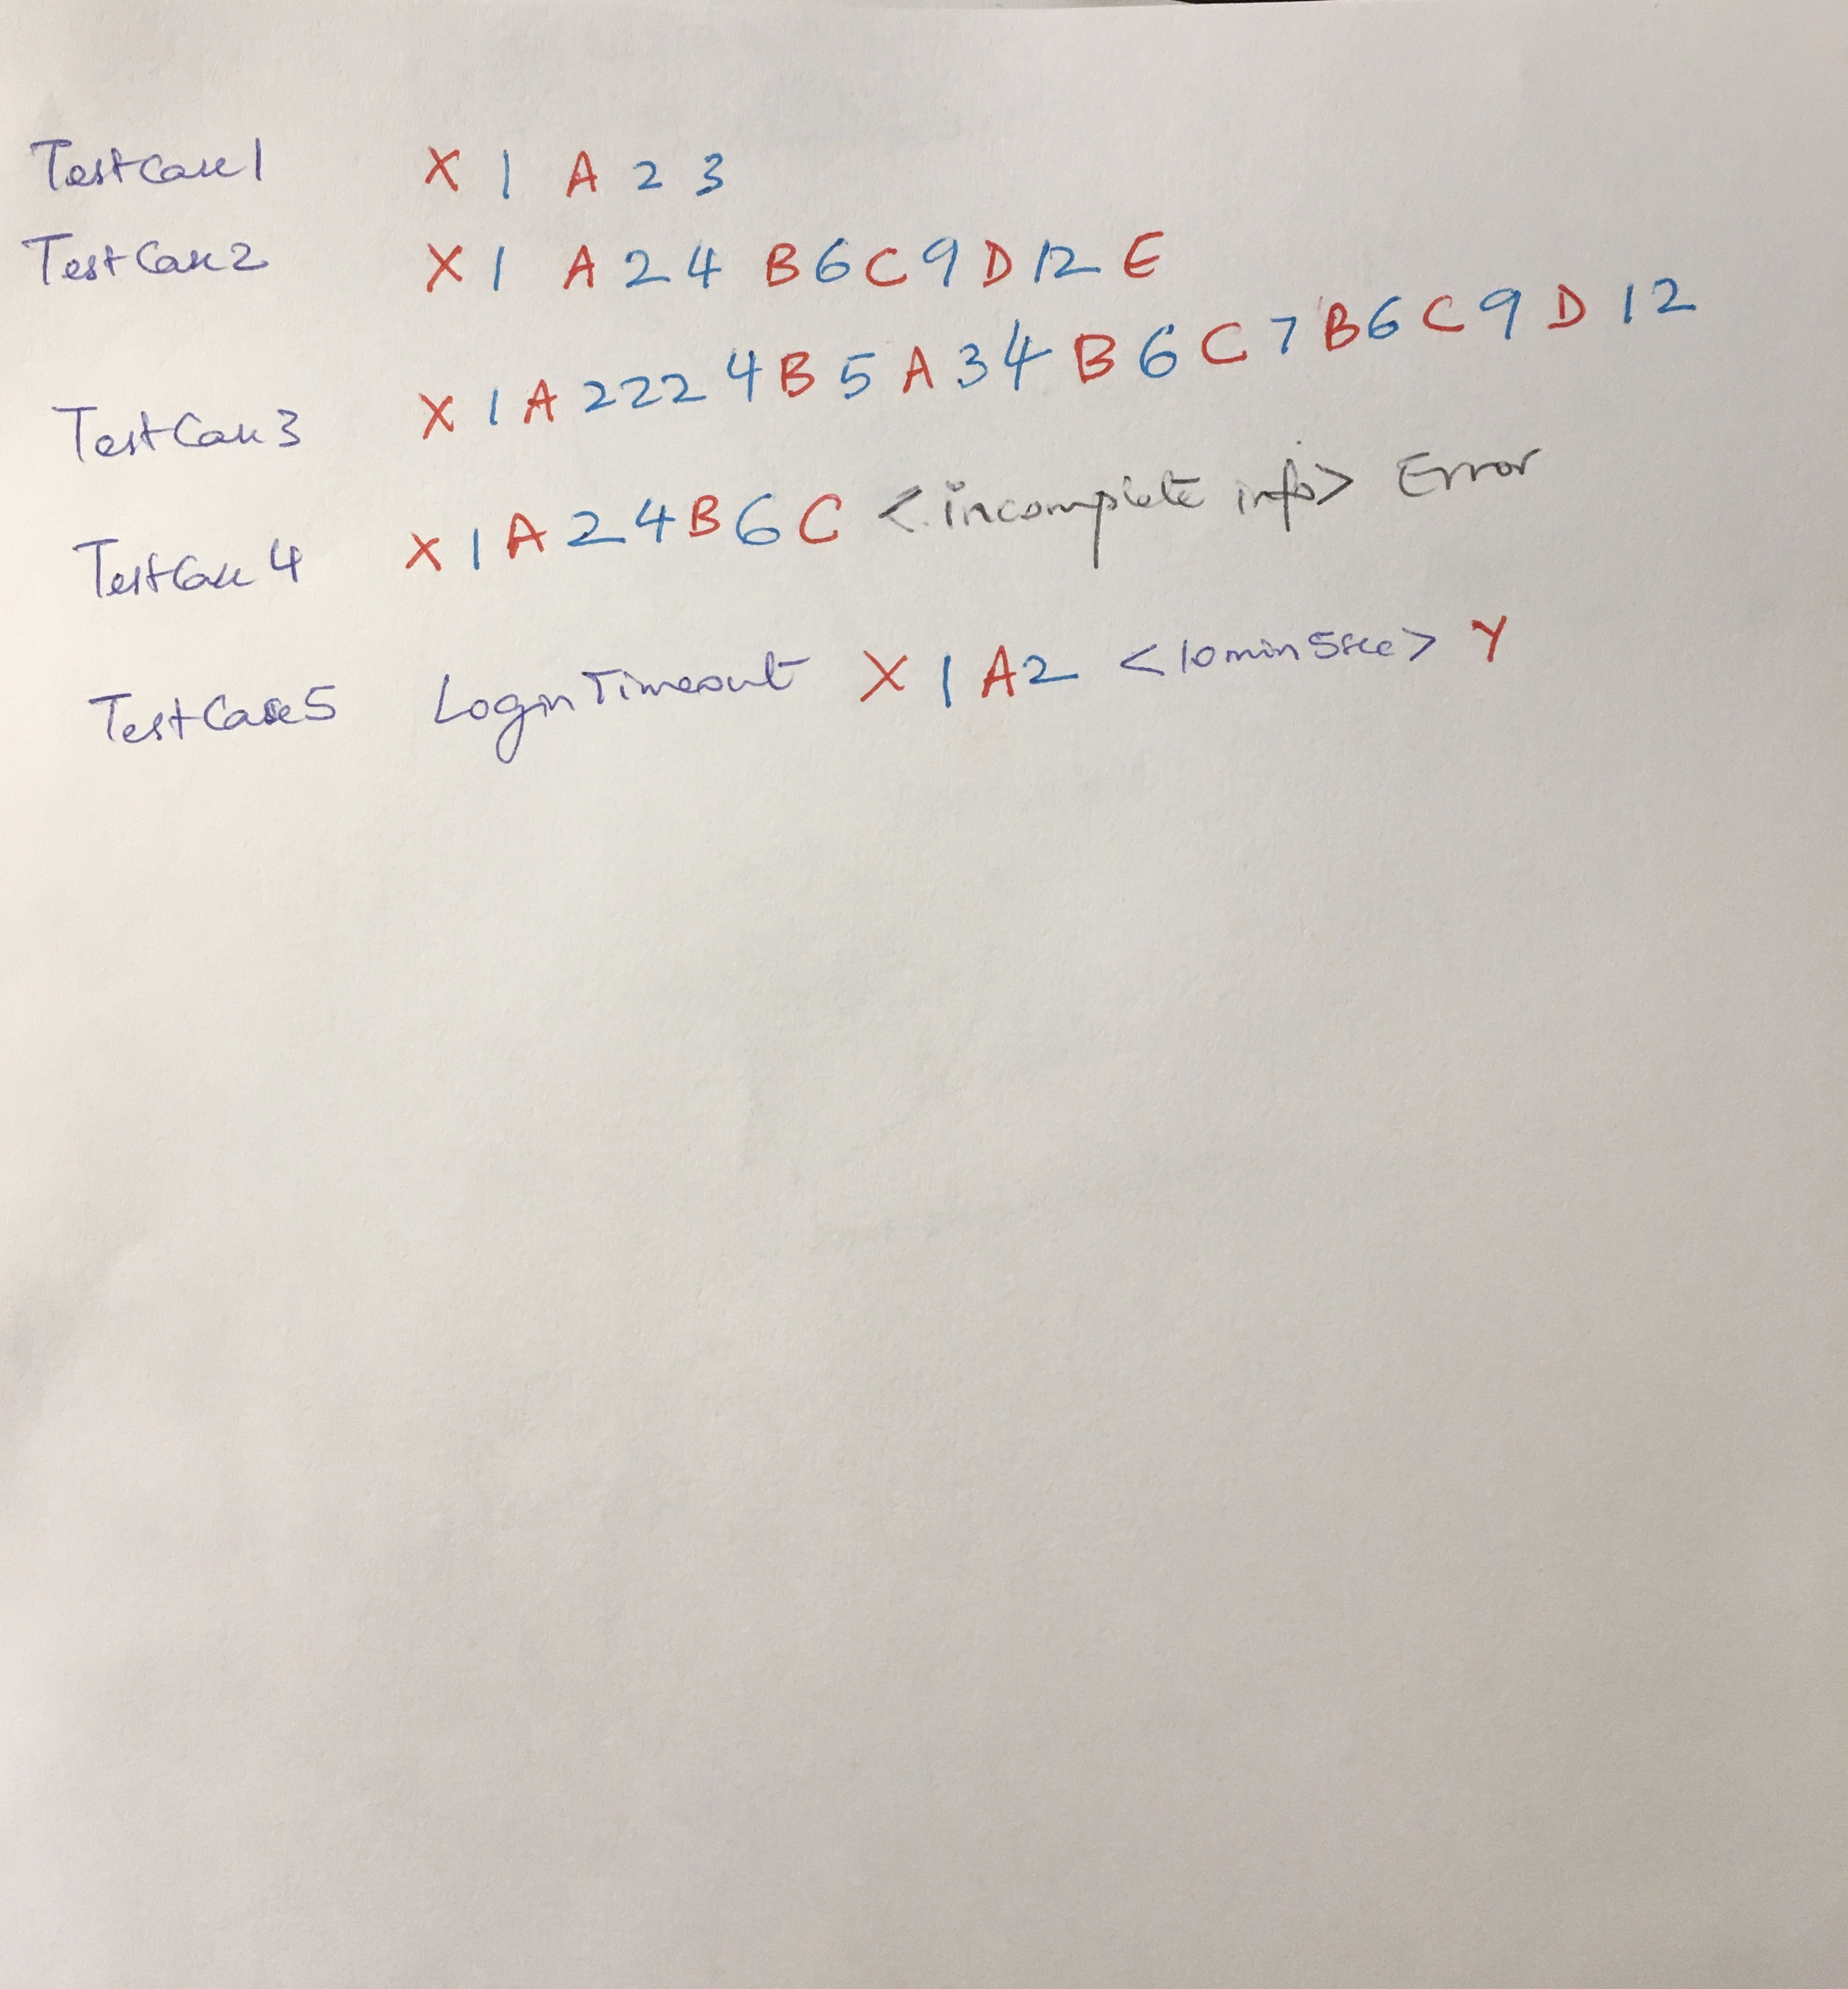 TestCase1 X 1 A 2 3
TestCase2 X 1 A 2 4 B 6 C 9 D 12 E
TestCase3 X 1 A 2 2 2 4 B 5 A 3 4 B 6 C 7 B 6 C 9 D 12
TestCase4 X 1 A 2 4 B 6 C <incomplete info> Error
TestCase5 Login Timeout X 1 A 2 <10min5sec> Y